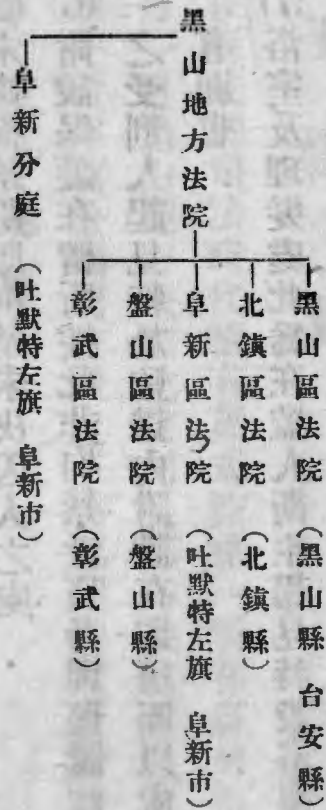 黑山地方法院
黑山區法院 (黑山縣 台安縣)
北鎮區法院 (北鎮縣)
阜新區法院 (吐默特左旗 阜新市)
盤山區法院 (盤山縣)
彰武區法院 (彰武縣)
阜新分庭 (吐默特左旗 阜新市)